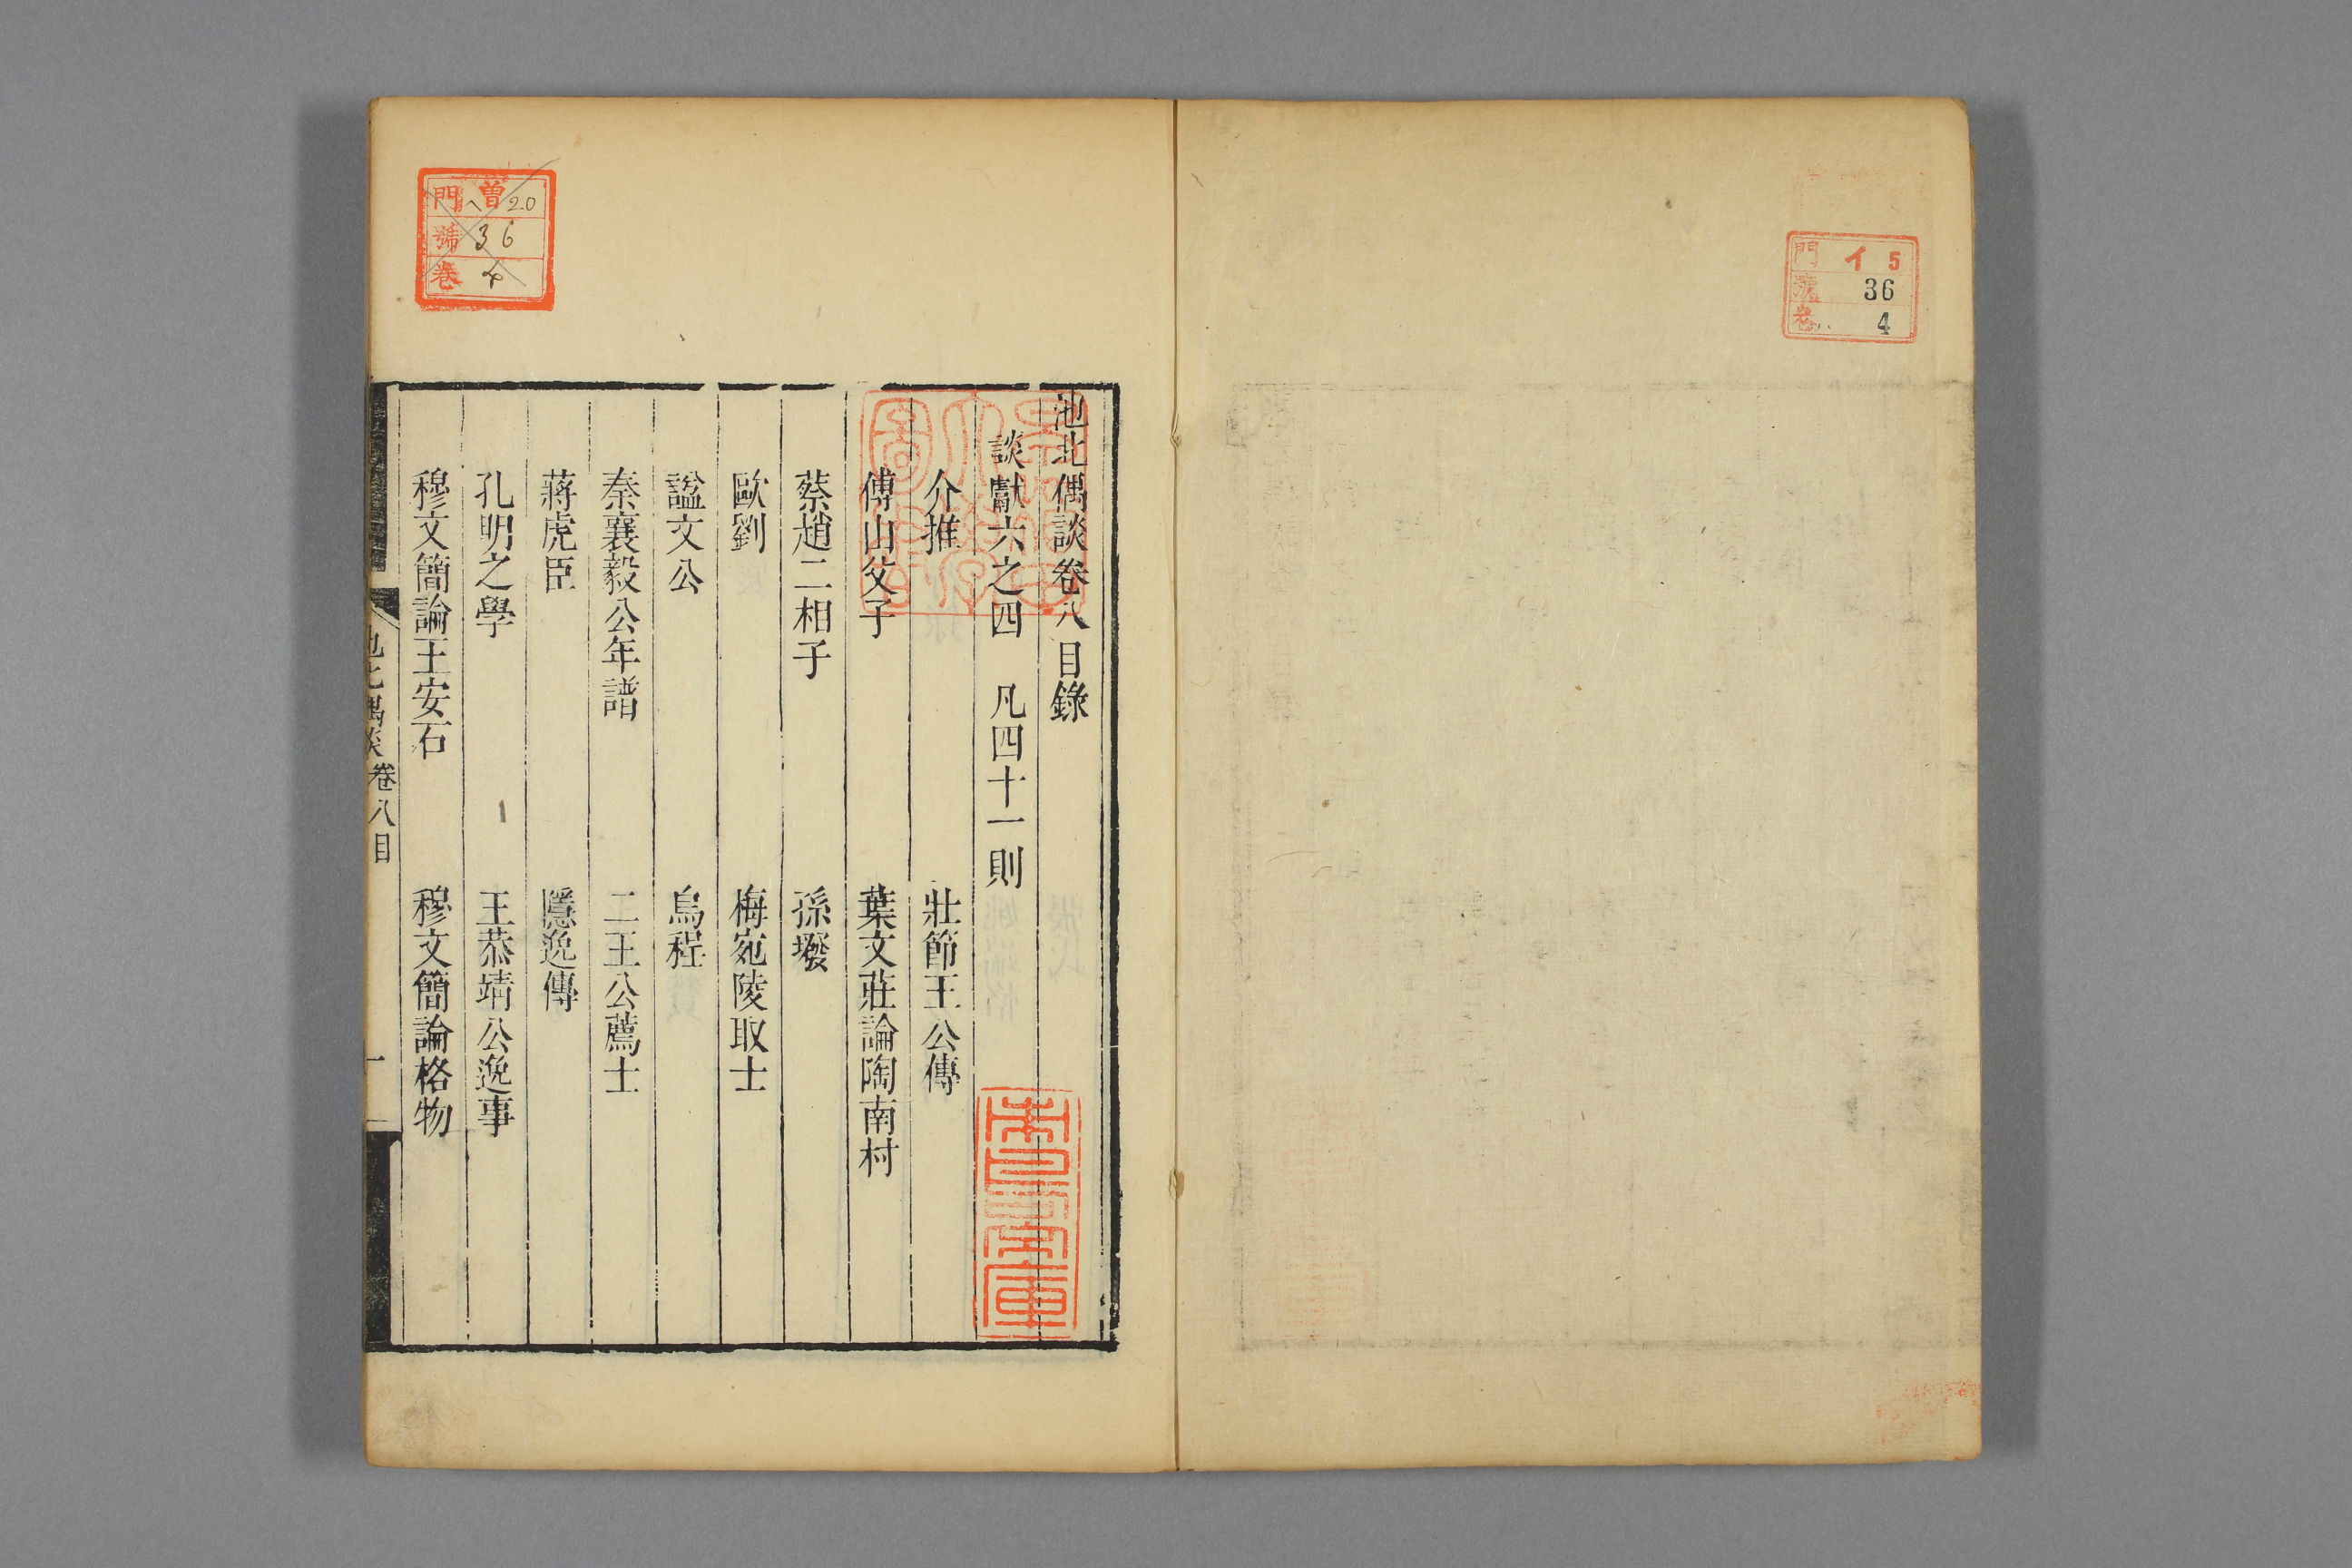 門 イ 5
號 36
卷 4
池北偶談卷八目錄
談獻六之四　凡四十一則
介推　壯節王公傳
傅山父子　葉文莊論陶南村
蔡趙二相子　孫墢
歐劉　梅宛陵取士
謚文公　烏程
秦襄毅公年譜　二王公薦士
蔣虎臣　隱逸傳
孔明之學　王恭靖公逸事
穆文簡論王安石　穆文簡論格物
池北偶談 卷八目 一
曽
門 ヘ 20
號 36
卷 4